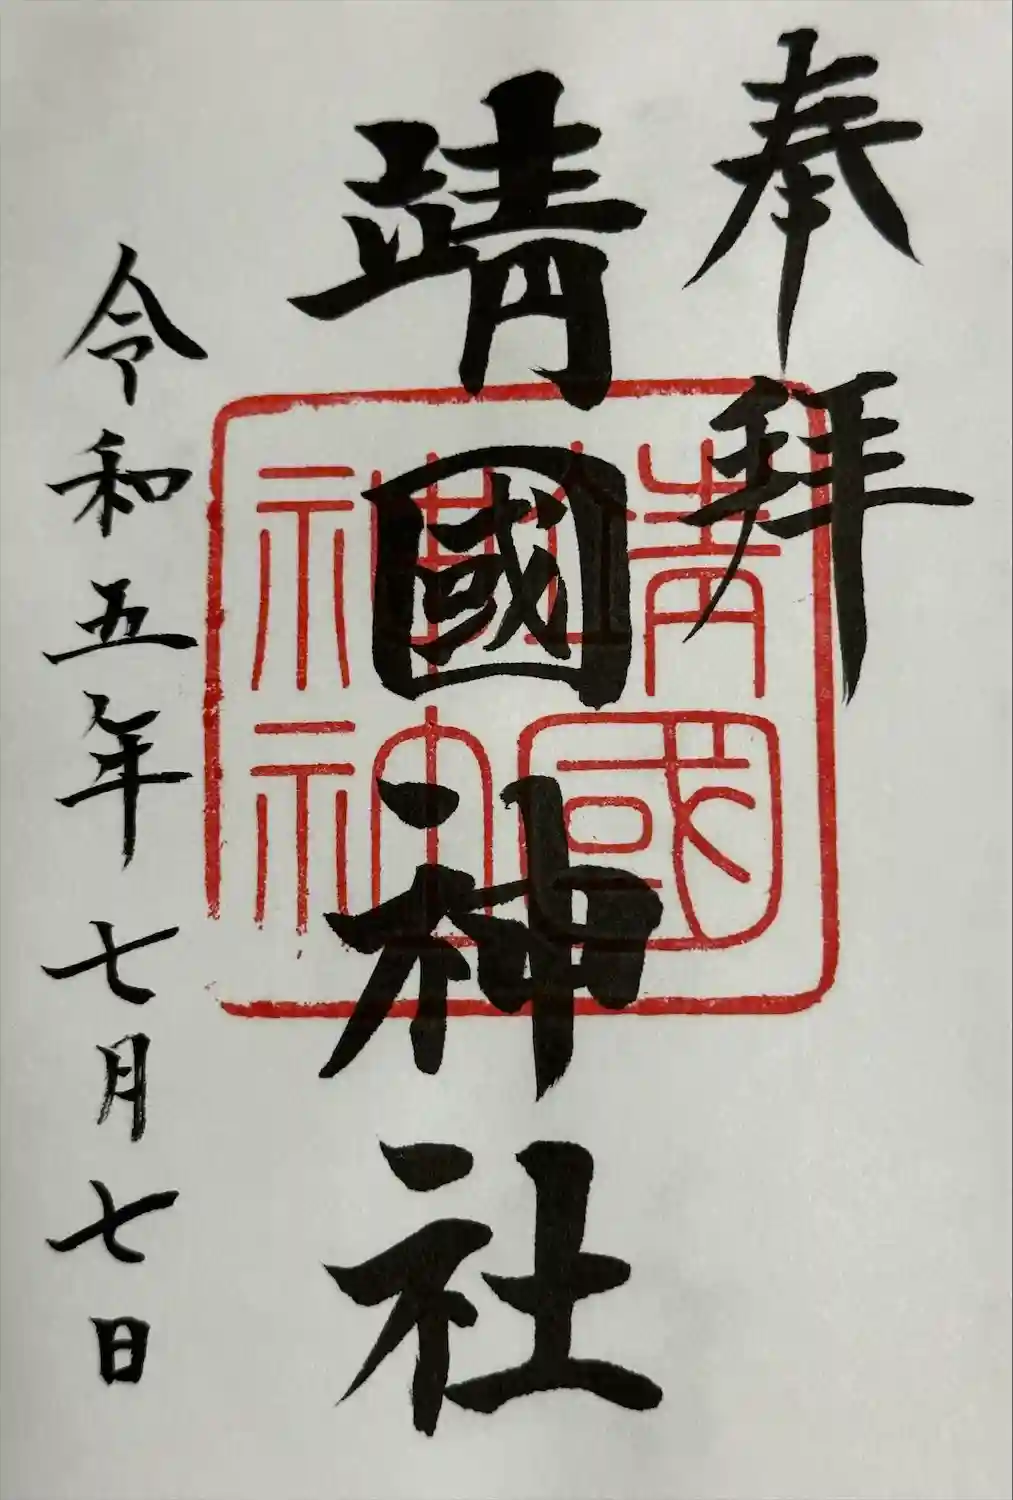 奉拝
靖國神社
令和五年七月七日
靖國
神社